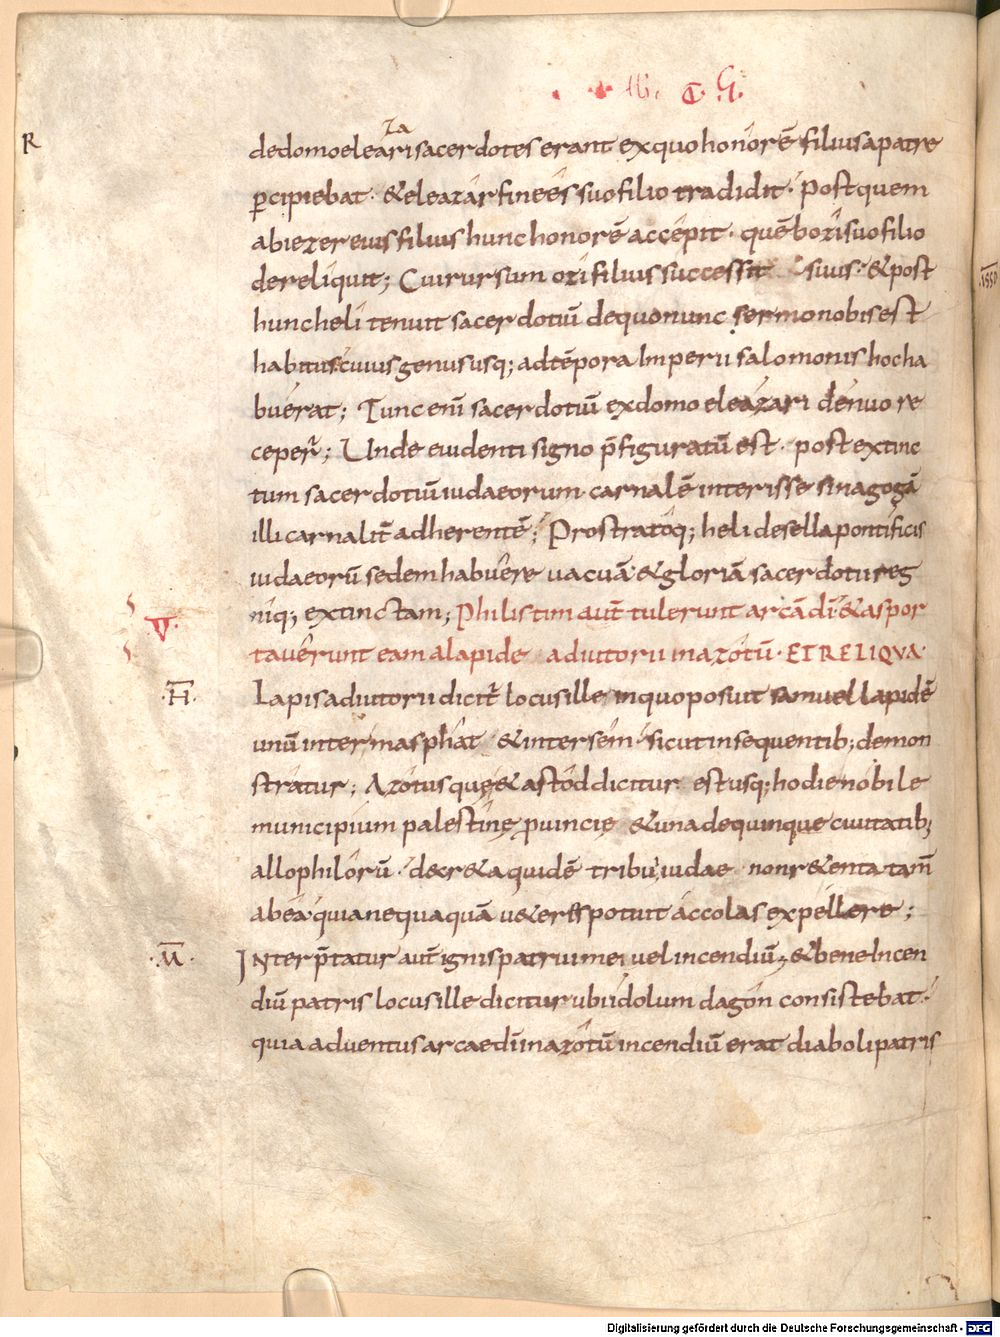 R
C. VI.
za
dedomoeleari sacerdotes erant exquo honorē filius a patre
ꝑcipiebat· &eleazar finees suo filio tradidit· Postquem
abiezer eius filius hunc honorē accepit· quē bozi suo filio
dereliquit; Cui rursum ozi filius successit suus· &post
hunc heli tenuit sacerdotiū dequo nunc sermo nobis est
habitus cuius genus usq; ad tēpora Imperii salomonis hoc ha
buerat; Tunc eni̅ sacerdotiū exdomo eleazari denuo re
ceper̄; Unde euidenti signo p̄figuratū est· post extinc
tum sacerdotiū iudaeorum· carnalē interisse sinagogā
illi carnalit̄ adherentē; Prostratoq; heli desella pontificis
iudaeorū sedem habuere uacuā &gloriā sacerdotii reg
niq; extinctam; Philistiim aut̄ tulerunt arcā di̅ &aspor
V.
tauerunt eam alapide adiutorii inazotū· ET RELIQUA·
·H̅·
Lapis adiutorii dicit̄ locus ille inquo posuit samuel lapidē
unū inter masphat &inter sen· sicut insequentib; demon
stratur; Azotus quę &astod dicitur est usq; hodie nobile
municipium palestinę ꝓuincię &una dequinque ciuitatib;
allophilorū· decreta quidē tribui iudae nonretenta tam̄
abea quia nequaquā ueteres potuit accolas expellere;
·M̅·
Interp̄tatur aut̄ ignis patrui mei uel incendiū, &bene Incen
diū patris locus ille dicitur ubi idolum dagon consistebat·
quia aduentus arcae di̅ inazotū incendiū erat diaboli patris
Digitalisierung gefördert durch die Deutsche Forschungsgemeinschaft - DFG